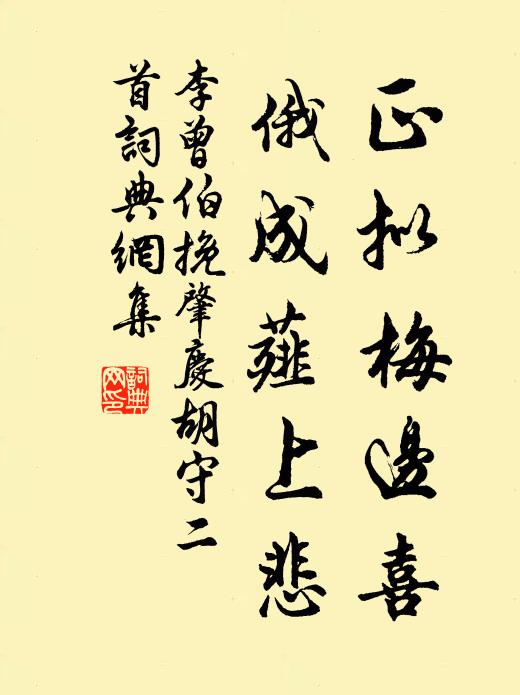 正拟梅邊喜
俄成薤上悲
李曾伯挽肇慶胡守二
首詞典網集
詞典
网印